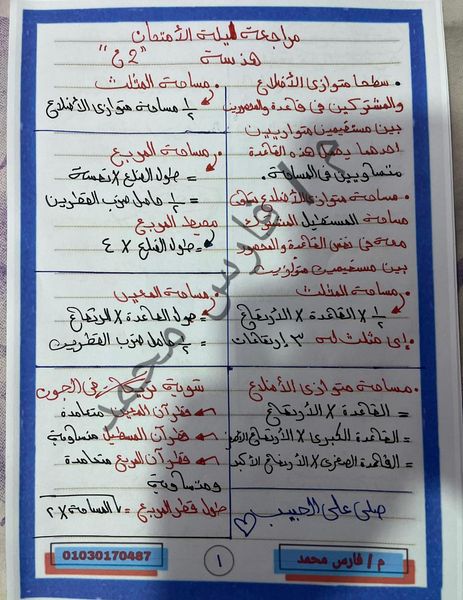 مراجعة ليلة الأمتحان
هندسة "2ع"
• سطحا متوازى الأضلاع
والمشتركين فى قاعدة والمحصورين
بين مستقيمين متوازيين
احدهما يحمل هذه القاعدة
متساويين فى المساحة.
• مساحة متوازى الأضلاع تساوى
مساحة المستطيل المشترك
معه فى نفس القاعدة والمحصور
بين مستقيمين متوازيين
• مساحة المثلث
1/2 X القاعدة X الأرتفاع
• أى مثلث له ٣ إرتفاعات
• مساحة متوازى الأضلاع
= القاعدة X الأرتفاع
= القاعدة الكبرى X الأرتفاع الأصغر
= القاعدة الصغرى X الأرتفاع الأكبر
صلى على الحبيب
• مساحة المثلث
1/2 مساحة متوازى الأضلاع
• مساحة المربع
= طول الضلع X نفسة
= 1/2 حاصل ضرب القطرين
محيط المربع
= طول الضلع X ٤
• مساحة المعين
= طول القاعدة X الارتفاع
= 1/2 حاصل ضرب القطرين
شوية فى الجون
قطرآن المعين متعامدة
قطرآن المستطيل متساوية
قطرآن المربع متعامدة
ومتساوية
طول قطر المربع = √المساحة X ٢
م / فارس محمد
م / فارس محمد
١
01030170487